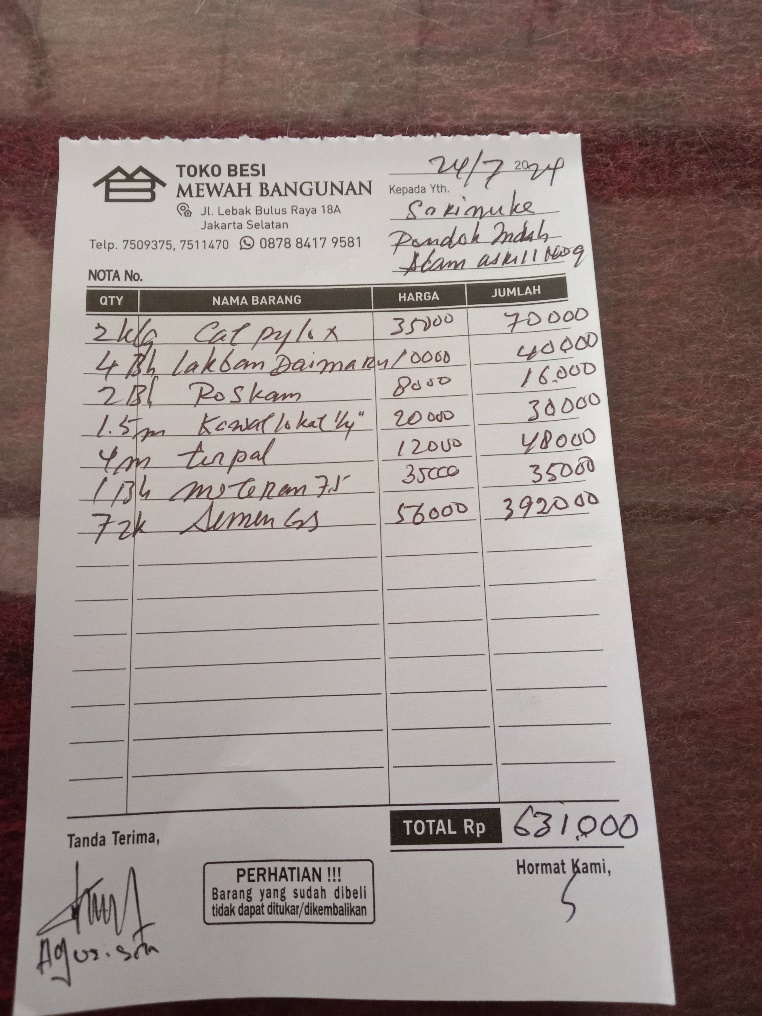 TOKO BESI
MEWAH BANGUNAN
Jl. Lebak Bulus Raya 18A
Jakarta Selatan
Telp. 7509375, 7511470 0878 8417 9581
24/7 2024
Kepada Yth.
Pondok Indah
NOTA No.
QTY NAMA BARANG HARGA JUMLAH
2 klg Cat pylox 35000 70000
4 Bh lakban Daimaru 10000 40000
2 Bh Roskam 8000 16.000
1.5m Kawat lokat 1/4" 20000 30000
4m terpal 12000 48000
1 Bh meteran 7.5 35000 35000
7 zk Semen GS 56000 392000
TOTAL Rp 631.000
Tanda Terima,
Hormat Kami,
PERHATIAN !!!
Barang yang sudah dibeli
tidak dapat ditukar/dikembalikan